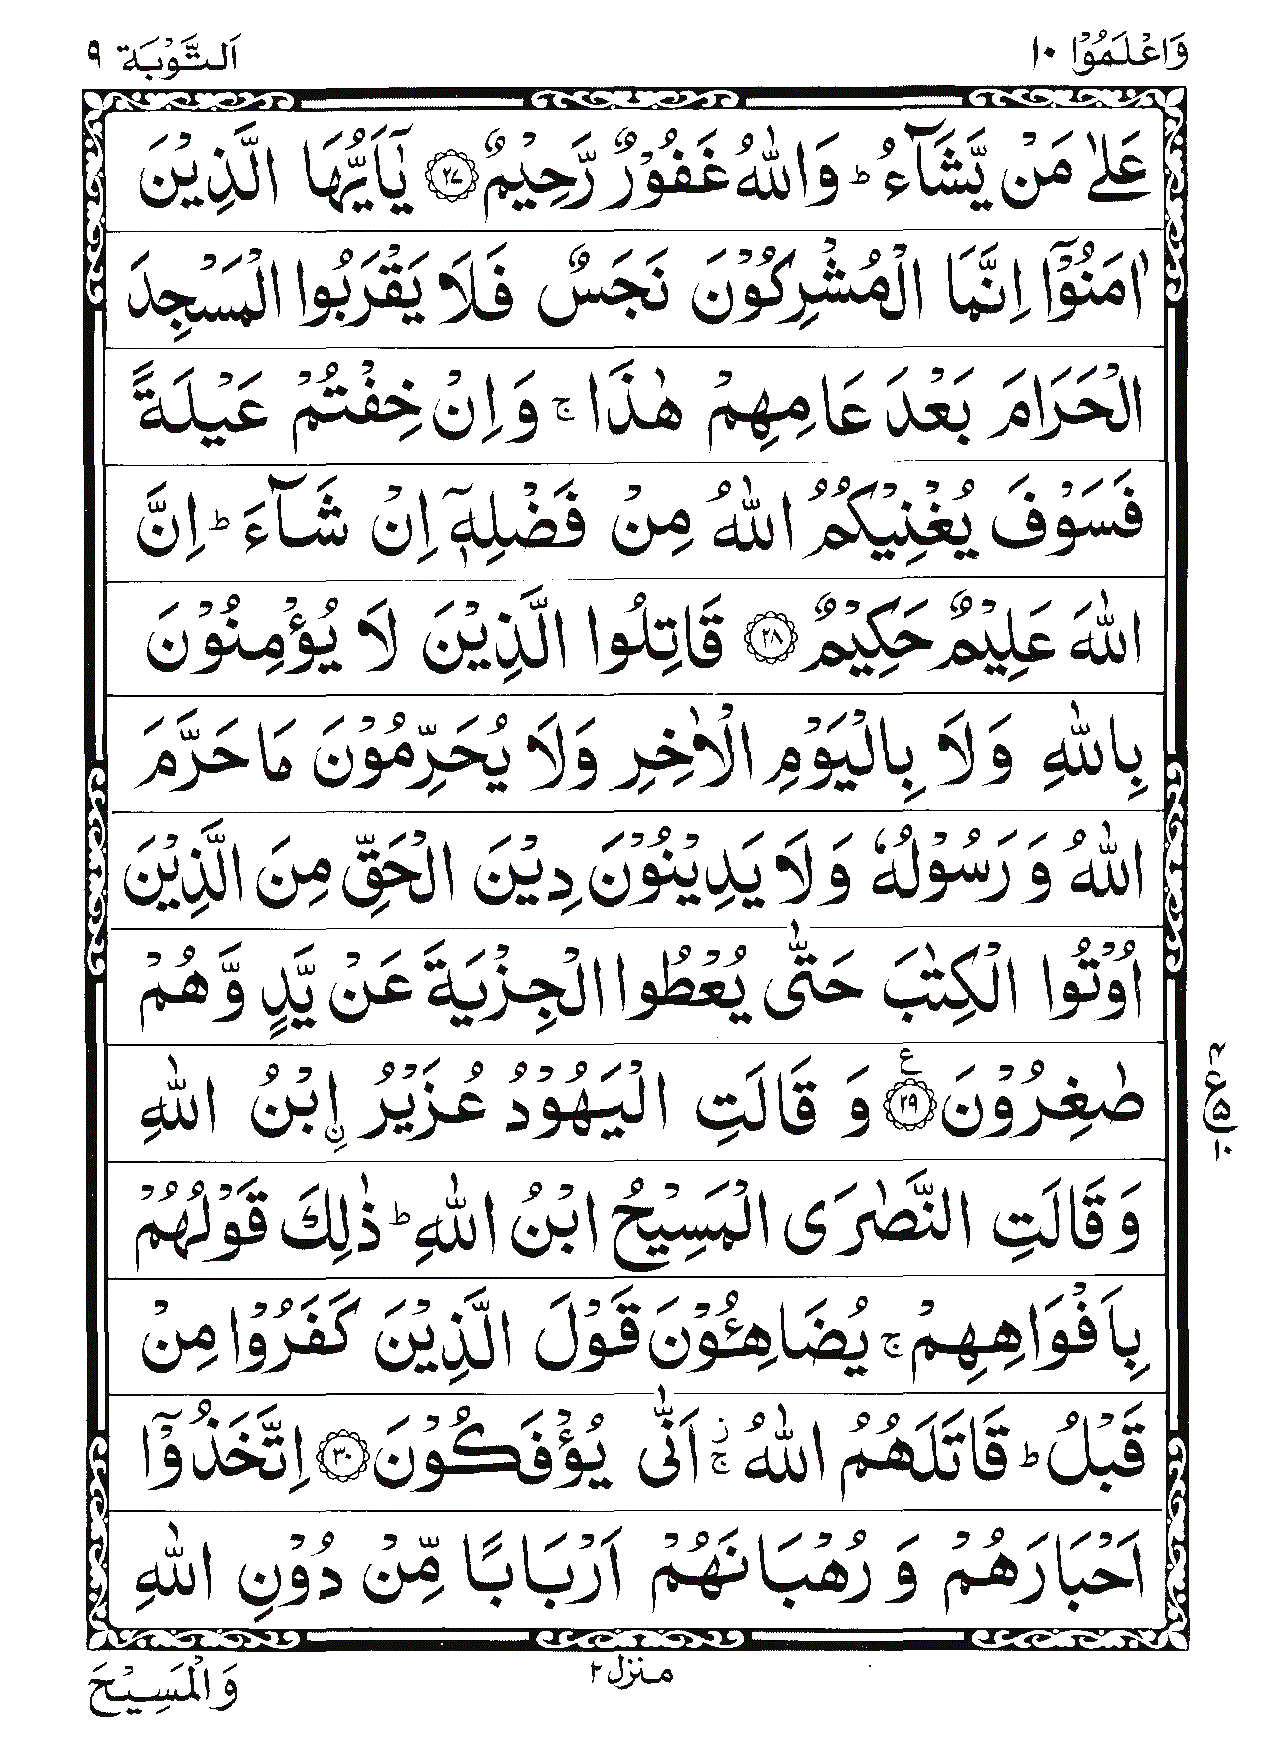 وَاعْلَمُوْۤا ١٠ اَلتَّوْبَة ٩
عَلٰى مَنْ يَّشَآءُ ؕ وَاللّٰهُ غَفُوْرٌ رَّحِيْمٌ ﴿٢٧﴾ يٰۤاَيُّهَا الَّذِيْنَ
اٰمَنُوْۤا اِنَّمَا الْمُشْرِكُوْنَ نَجَسٌ فَلَا يَقْرَبُوا الْمَسْجِدَ
الْحَرَامَ بَعْدَ عَامِهِمْ هٰذَا ۚ وَاِنْ خِفْتُمْ عَيْلَةً
فَسَوْفَ يُغْنِيْكُمُ اللّٰهُ مِنْ فَضْلِهٖۤ اِنْ شَآءَ ؕ اِنَّ
اللّٰهَ عَلِيْمٌ حَكِيْمٌ ﴿٢٨﴾ قَاتِلُوا الَّذِيْنَ لَا يُؤْمِنُوْنَ
بِاللّٰهِ وَلَا بِالْيَوْمِ الْاٰخِرِ وَلَا يُحَرِّمُوْنَ مَا حَرَّمَ
اللّٰهُ وَرَسُوْلُهٗ وَلَا يَدِيْنُوْنَ دِيْنَ الْحَقِّ مِنَ الَّذِيْنَ
اُوْتُوا الْكِتٰبَ حَتّٰى يُعْطُوا الْجِزْيَةَ عَنْ يَّدٍ وَّهُمْ
صٰغِرُوْنَ ﴿٢٩﴾ وَقَالَتِ الْيَهُوْدُ عُزَيْرُ ۨابْنُ اللّٰهِ
ع ٤ ٥ ١٠
وَقَالَتِ النَّصٰرَى الْمَسِيْحُ ابْنُ اللّٰهِ ؕ ذٰلِكَ قَوْلُهُمْ
بِاَفْوَاهِهِمْ ۚ يُضَاهِـُٔوْنَ قَوْلَ الَّذِيْنَ كَفَرُوْا مِنْ
قَبْلُ ؕ قَاتَلَهُمُ اللّٰهُ ۚ ز اَنّٰى يُؤْفَكُوْنَ ﴿٣٠﴾ اِتَّخَذُوْۤا
اَحْبَارَهُمْ وَرُهْبَانَهُمْ اَرْبَابًا مِّنْ دُوْنِ اللّٰهِ
منزل ٢
وَالْمَسِيْحَ